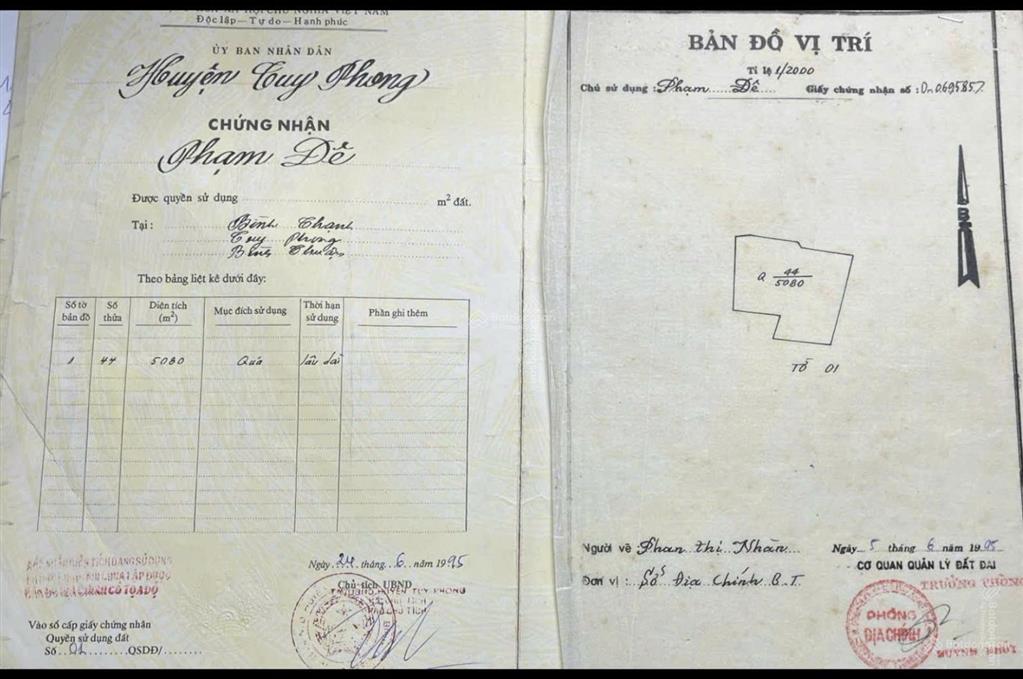 Độc lập - Tự do - Hạnh phúc
ỦY BAN NHÂN DÂN
Huyện Tuy Phong
CHỨNG NHẬN
Phạm Dề
Được quyền sử dụng m² đất.
Tại: Bình Thạnh
Tuy Phong
Bình Thuận
Theo bảng liệt kê dưới đây:
Số tờ bản đồ Số thửa Diện tích (m²) Mục đích sử dụng Thời hạn sử dụng Phần ghi thêm
1 44 5080 Quả lâu dài
Ngày 24 tháng 6 năm 1995
Chủ tịch UBND
Vào sổ cấp giấy chứng nhận
Quyền sử dụng đất
Số 01 QSDĐ/
BẢN ĐỒ VỊ TRÍ
Tỉ lệ 1/2000
Chủ sử dụng: Phạm Dề Giấy chứng nhận số: 0695857
B
Q 44
5080
TỜ 01
Người vẽ Phan thị Nhàn
Đơn vị: Sở Địa Chính B.T.
Ngày 5 tháng 6 năm 1995
CƠ QUAN QUẢN LÝ ĐẤT ĐAI
TRƯỞNG PHÒNG
PHÒNG
ĐỊA CHÍNH